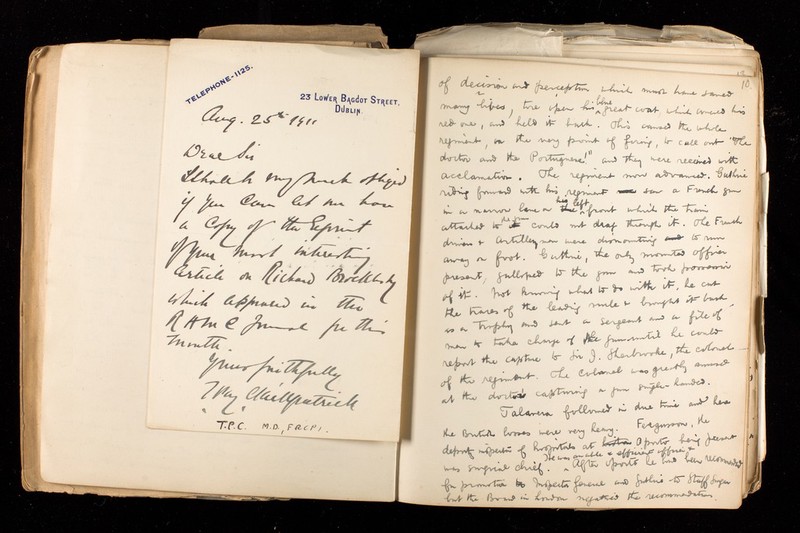 TELEPHONE-1125.
23 LOWER BAGGOT STREET,
DUBLIN.
Aug. 25th 1911
Dear Sir
I should be very much obliged
if you can let me have
a copy of the reprint
of your most interesting
article on Richard Brocklesby
which appeared in the
R A M C Journal for this
month.
Yours faithfully
T Percy C Kirkpatrick
T.P.C. M.D., F.R.C.P.I.
10.
of decision and perception which must have saved
many lives, tore open his blue great coat which covered his
red one, and held it back. This caused the whole
regiment, on the very point of firing, to call out "The
doctor and the Portuguese!" and they were received with
acclamation. The regiment now advanced. Guthrie
riding forward with his regiment saw a French gun
in a narrow lane on his left front which the train
attached to the gun could not drag through it. The French
drivers & artillerymen were dismounting to run
away on foot. Guthrie, the only mounted officer
present, galloped to the gun and took possession
of it. Not knowing what to do with it, he cut
the traces of the leading mule & brought it back,
as a trophy and sent a sergeant and a file of
men to take charge of the gun until he could
report the capture to Sir J. Sherbrooke, the colonel
of the regiment. The Colonel was greatly amused
at the doctor's capturing a gun single-handed.
Talavera followed in due time and here
the British losses were very heavy. Fergusson, the
deputy inspector of hospitals at Oporto being
was surgical chief. He was an able & efficient officer. After Oporto he had been recommended
for promotion to Inspector General and Guthrie to Staff Surgeon
but the Board in London neglected the recommendation.